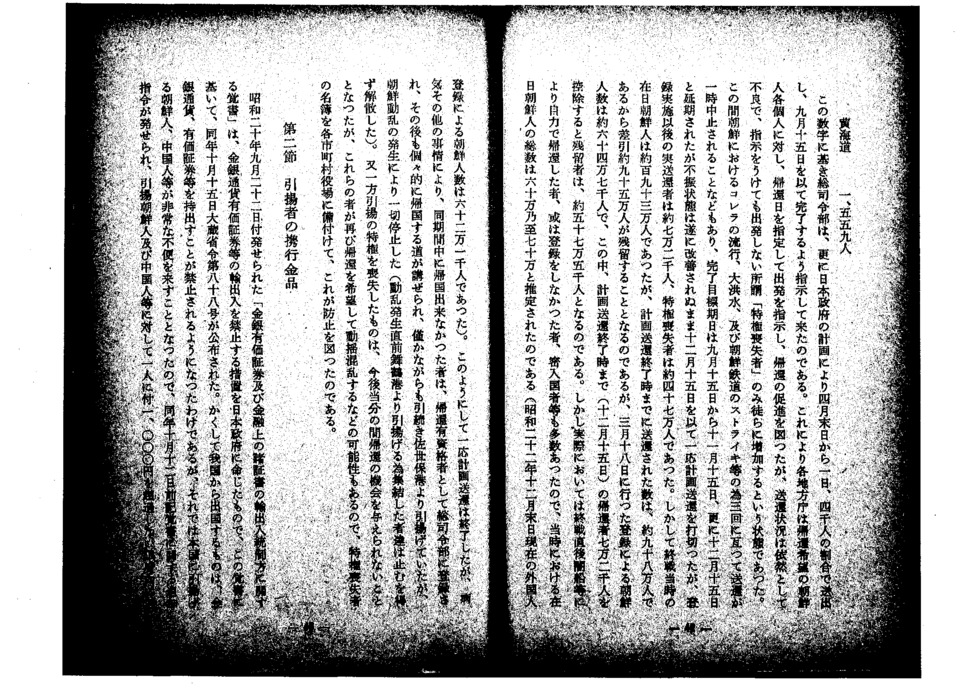 黄海道　一、五五九人
この数字に基き総司令部は、更に日本政府の計画により四月末日から一日、四千人の割合で送出
し、九月十五日を以て完了するよう指示して来たのである。これにより各地方庁は帰還希望の朝鮮
人各個人に対し、帰還日を指定して出発を指示し、帰還の促進を図つたが、送還状況は依然として
不良で、指示をうけても出発しない所謂「特権喪失者」のみ徒らに増加するという状態であつた。
この間朝鮮におけるコレラの流行、大洪水、及び朝鮮鉄道のストライキ等の為三回に亙つて送還が
一時中止されることなどもあり、完了目標期日は九月十五日から十一月十五日、更に十二月十五日
と延期されたが不振状態は遂に改善されぬまま十二月十五日を以て一応計画送還を打切つたが、登
録実施以後の実送還者は約七万二千人、特権喪失者は約四十七万人であつた。しかして終戦当時の
在日朝鮮人は約百九十三万人であつたが、計画送還終了時までに送還された数は、約九十八万人で
あるから差引約九十五万人が残留することとなるのであるが、三月十八日に行つた登録による朝鮮
人数は約六十四万七千人で、この中、計画送還終了時まで（十二月十五日）の帰還者七万二千人を
控除すると残留者は、約五十七万五千人となるのである。しかし実際においては終戦直後闇船等に
より自力で帰還した者、或は登録をしなかつた者、密入国者等も多数あつたので、当時における在
日朝鮮人の総数は六十万乃至七十万と推定されたのである（昭和二十二年十二月末日現在の外国人
登録による朝鮮人数は六十二万一千人であつた）。このようにして一応計画送還は終了したが、病
気その他の事情により、同期間中に帰国出来なかつた者は、帰還有資格者として総司令部に登録さ
れ、その後も個々的に帰国する道が講ぜられ、僅かながらも引続き佐世保港より引揚げていたが、
朝鮮動乱の発生により一切停止した（動乱発生直前舞鶴港より引揚げる為集結した者達は止むを得
ず解散した）。又一方引揚の特権を喪失したものは、今後当分の間帰還の機会を与えられないこと
となつたが、これらの者が再び帰還を希望して動揺混乱するなどの可能性もあるので、特権喪失者
の名簿を各市町村役場に備付けて、これが防止を図つたのである。
第二節　引揚者の携行金品
昭和二十年九月二十二日付発せられた「金銀有価証券及び金融上の諸証書の輸出入統制方に関す
る覚書」は、金銀通貨有価証券等の輸出入を禁止する措置を日本政府に命じたもので、この覚書に
基いて、同年十月十五日大蔵省令第八十八号が公布された。かくして我国から出国するものは、金
銀通貨、有価証券等を持出すことが禁止されるようになつたわけであるが、それでは
る朝鮮人、中国人等が非常な不便を来すこととなつたので、同年十月十二日前記覚書に関する
指令が発せられ、引揚朝鮮人及び中国人等に対して一人に付一、〇〇〇円を